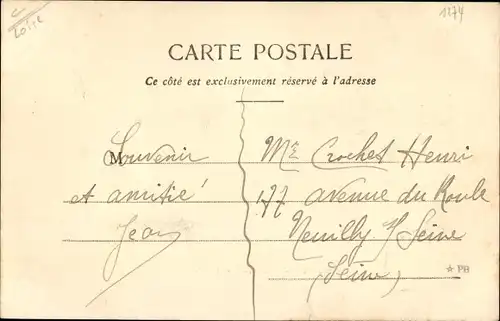 Loire
1274
CARTE POSTALE
Ce côté est exclusivement réservé à l'adresse
M
Souvenir
et amitié
Jean
Mr Crochet Henri
177 avenue du Roule
Neuilly s/ Seine
(Seine)
☆ PB